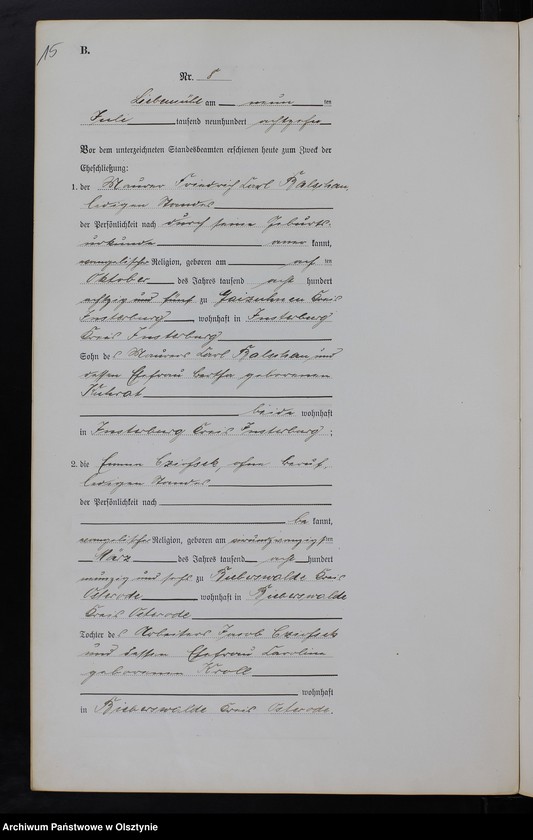 15
B.
Nr. 8
Liebemühl am neun ten
Juli tausend neunhundert achtzehn
Vor dem unterzeichneten Standesbeamten erschienen heute zum Zweck der
Eheschließung:
1. der Maurer Friedrich Carl
ledigen Standes
der Persönlichkeit nach durch seine Geburts-
urkunde anerkannt,
evangelischer Religion, geboren am ten
Oktober des Jahres tausend acht hundert
achtzig und fünf zu Gaizuhnen Kreis
Insterburg, wohnhaft in Insterburg
Kreis Insterburg
Sohn des Maurers Carl und
dessen Ehefrau Bertha geborenen
beide wohnhaft
in Insterburg Kreis Insterburg;
2. die Emma ohne Beruf,
ledigen Standes
der Persönlichkeit nach
bekannt,
evangelischer Religion, geboren am ten
März des Jahres tausend acht hundert
neunzig und sechs zu Bieberswalde Kreis
Osterode, wohnhaft in Bieberswalde
Kreis Osterode
Tochter des Arbeiters Jacob
und dessen Ehefrau Caroline
geborenen Kroll
wohnhaft
in Bieberswalde Kreis Osterode.
Archiwum Państwowe w Olsztynie